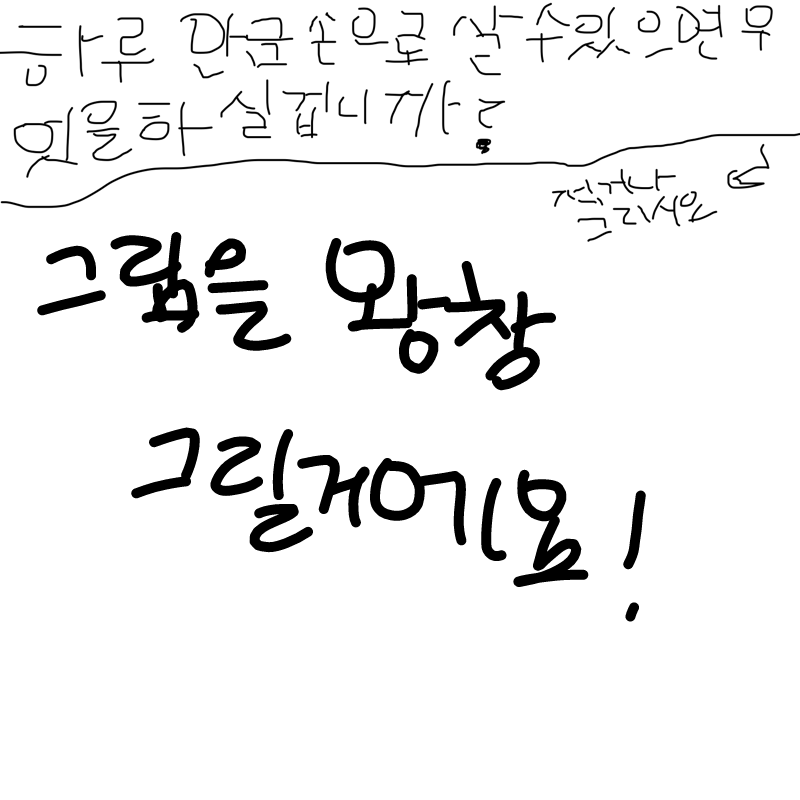 하루 만금손으로 살수있으면 무
엇을하실겁니까?
적거나
그리세요
그림을 왕창
그릴거에요!